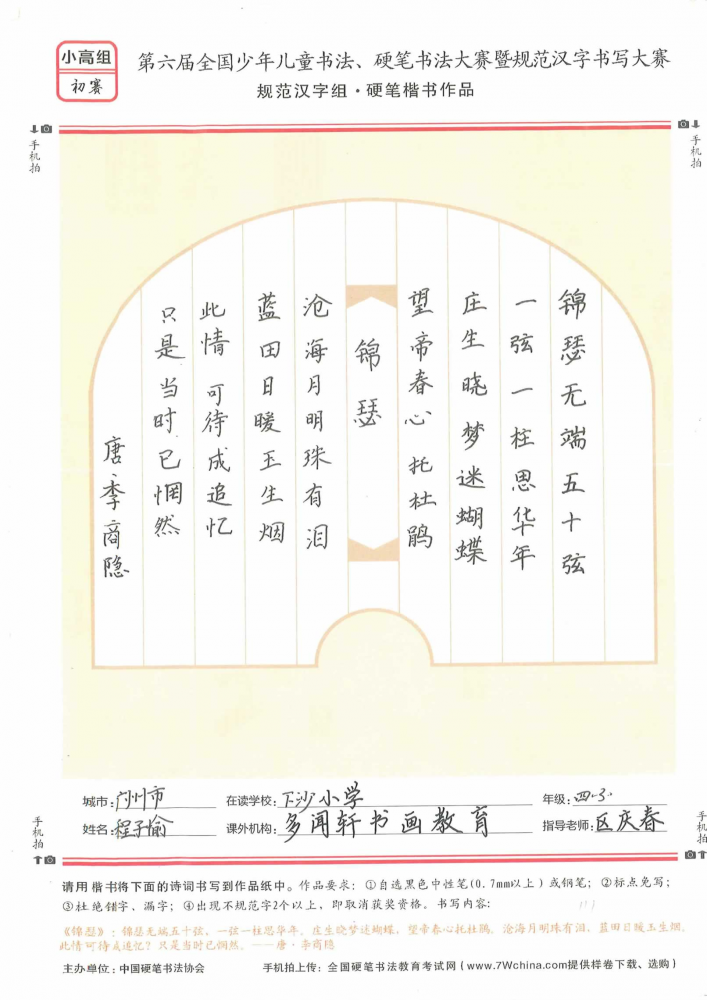 小高组
初赛
第六届全国少年儿童书法、硬笔书法大赛暨规范汉字书写大赛
规范汉字组·硬笔楷书作品
手机拍
手机拍
锦瑟无端五十弦
一弦一柱思华年
庄生晓梦迷蝴蝶
望帝春心托杜鹃
锦瑟
沧海月明珠有泪
蓝田日暖玉生烟
此情可待成追忆
只是当时已惘然
唐·李商隐
城市:广州市 在读学校:下沙小学 年级:四.3
姓名:程子愉 课外机构:多闻轩书画教育 指导老师:区庆春
手机拍
手机拍
请用楷书将下面的诗词书写到作品纸中。作品要求:①自选黑色中性笔(0.7mm以上)或钢笔;②标点免写;
③杜绝错字、漏字;④出现不规范字2个以上,即取消获奖资格。书写内容:
《锦瑟》:锦瑟无端五十弦,一弦一柱思华年。庄生晓梦迷蝴蝶,望帝春心托杜鹃。沧海月明珠有泪,蓝田日暖玉生烟。
此情可待成追忆?只是当时已惘然。——唐·李商隐
主办单位:中国硬笔书法协会 手机拍上传:全国硬笔书法教育考试网(www.7Wchina.com提供样卷下载、选购)